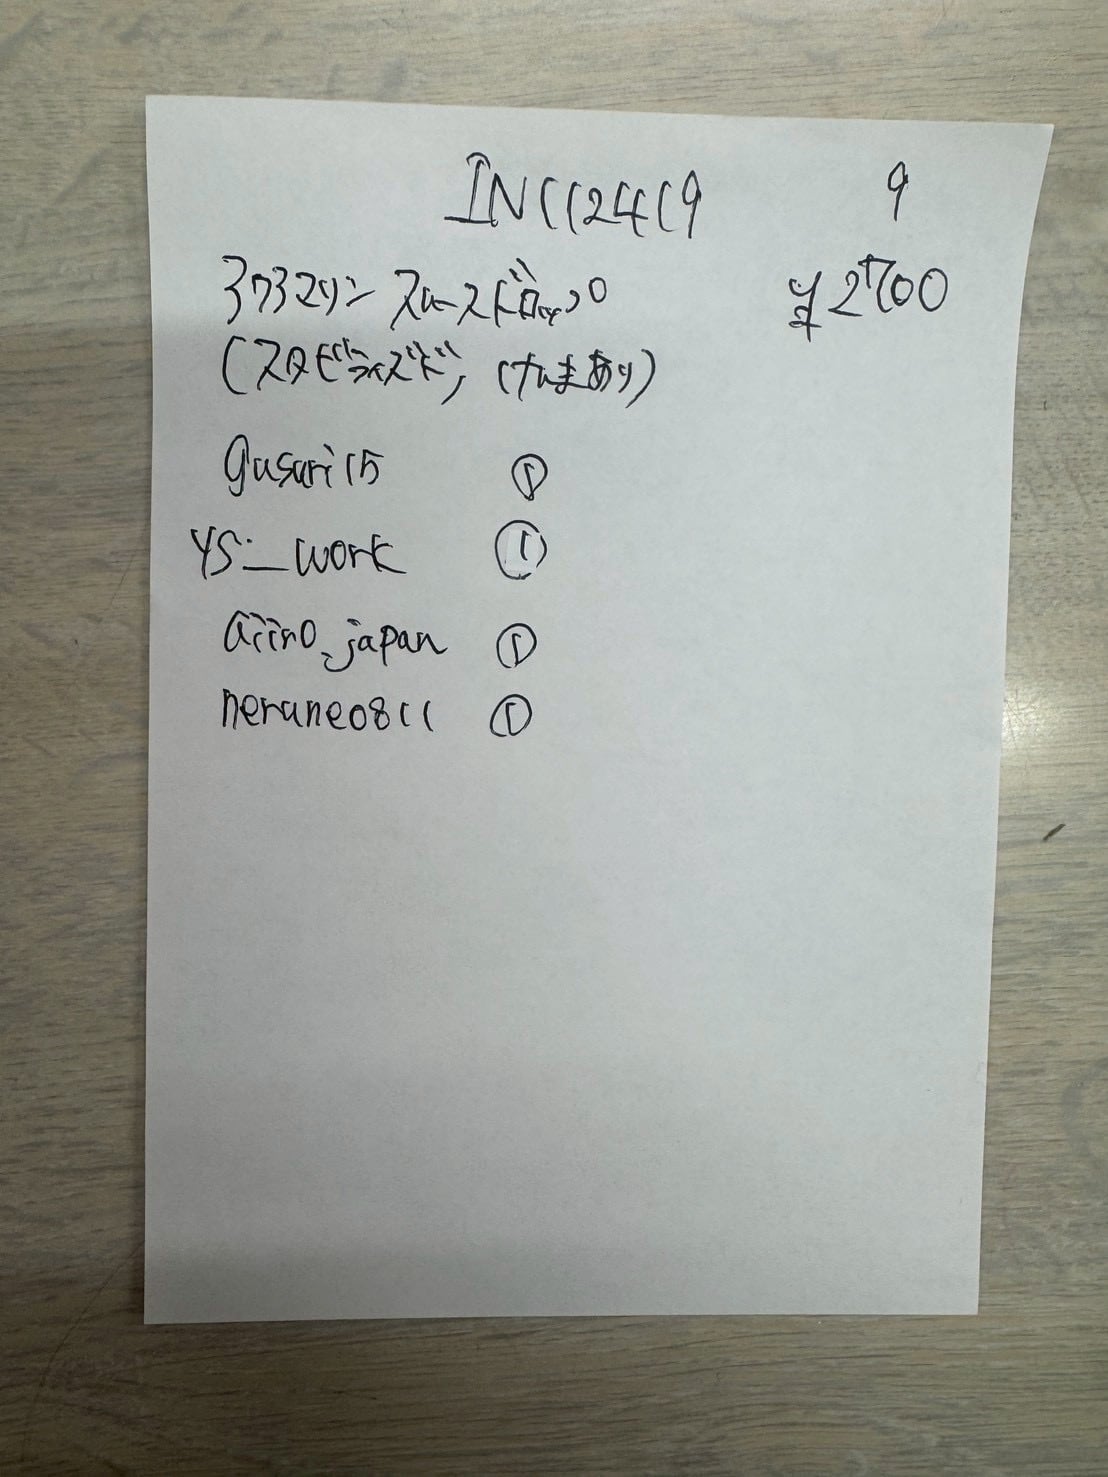 INC1124119 9
アクアマリン スムースドロップ ¥2700
(スタビライズド, けしきあり)
gusari15 ①
ys_work ①
aiir0_japan ①
nerune0811 ①